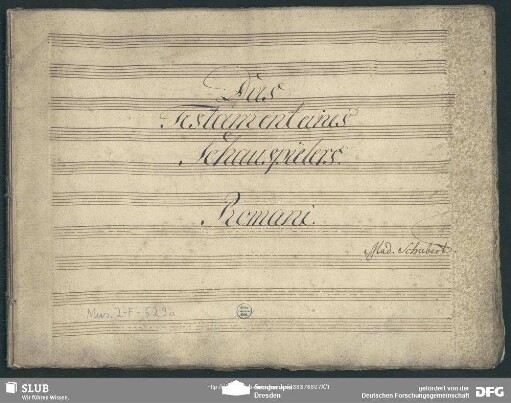 Das
Testament eines
Schauspielers.
Romani.
Mad. Schubert
Mus. 2-F-529a
SLUB
Wir führen Wissen.
Dresden
gefördert von der
Deutschen Forschungsgemeinschaft
DFG